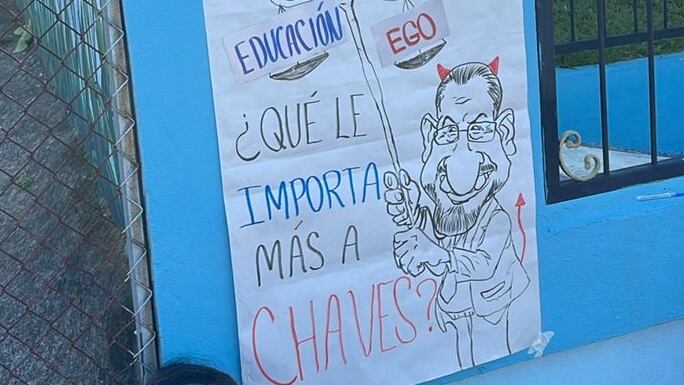 EDUCACIÓN
EGO
¿QUÉ LE
IMPORTA
MÁS A
CHAVES?